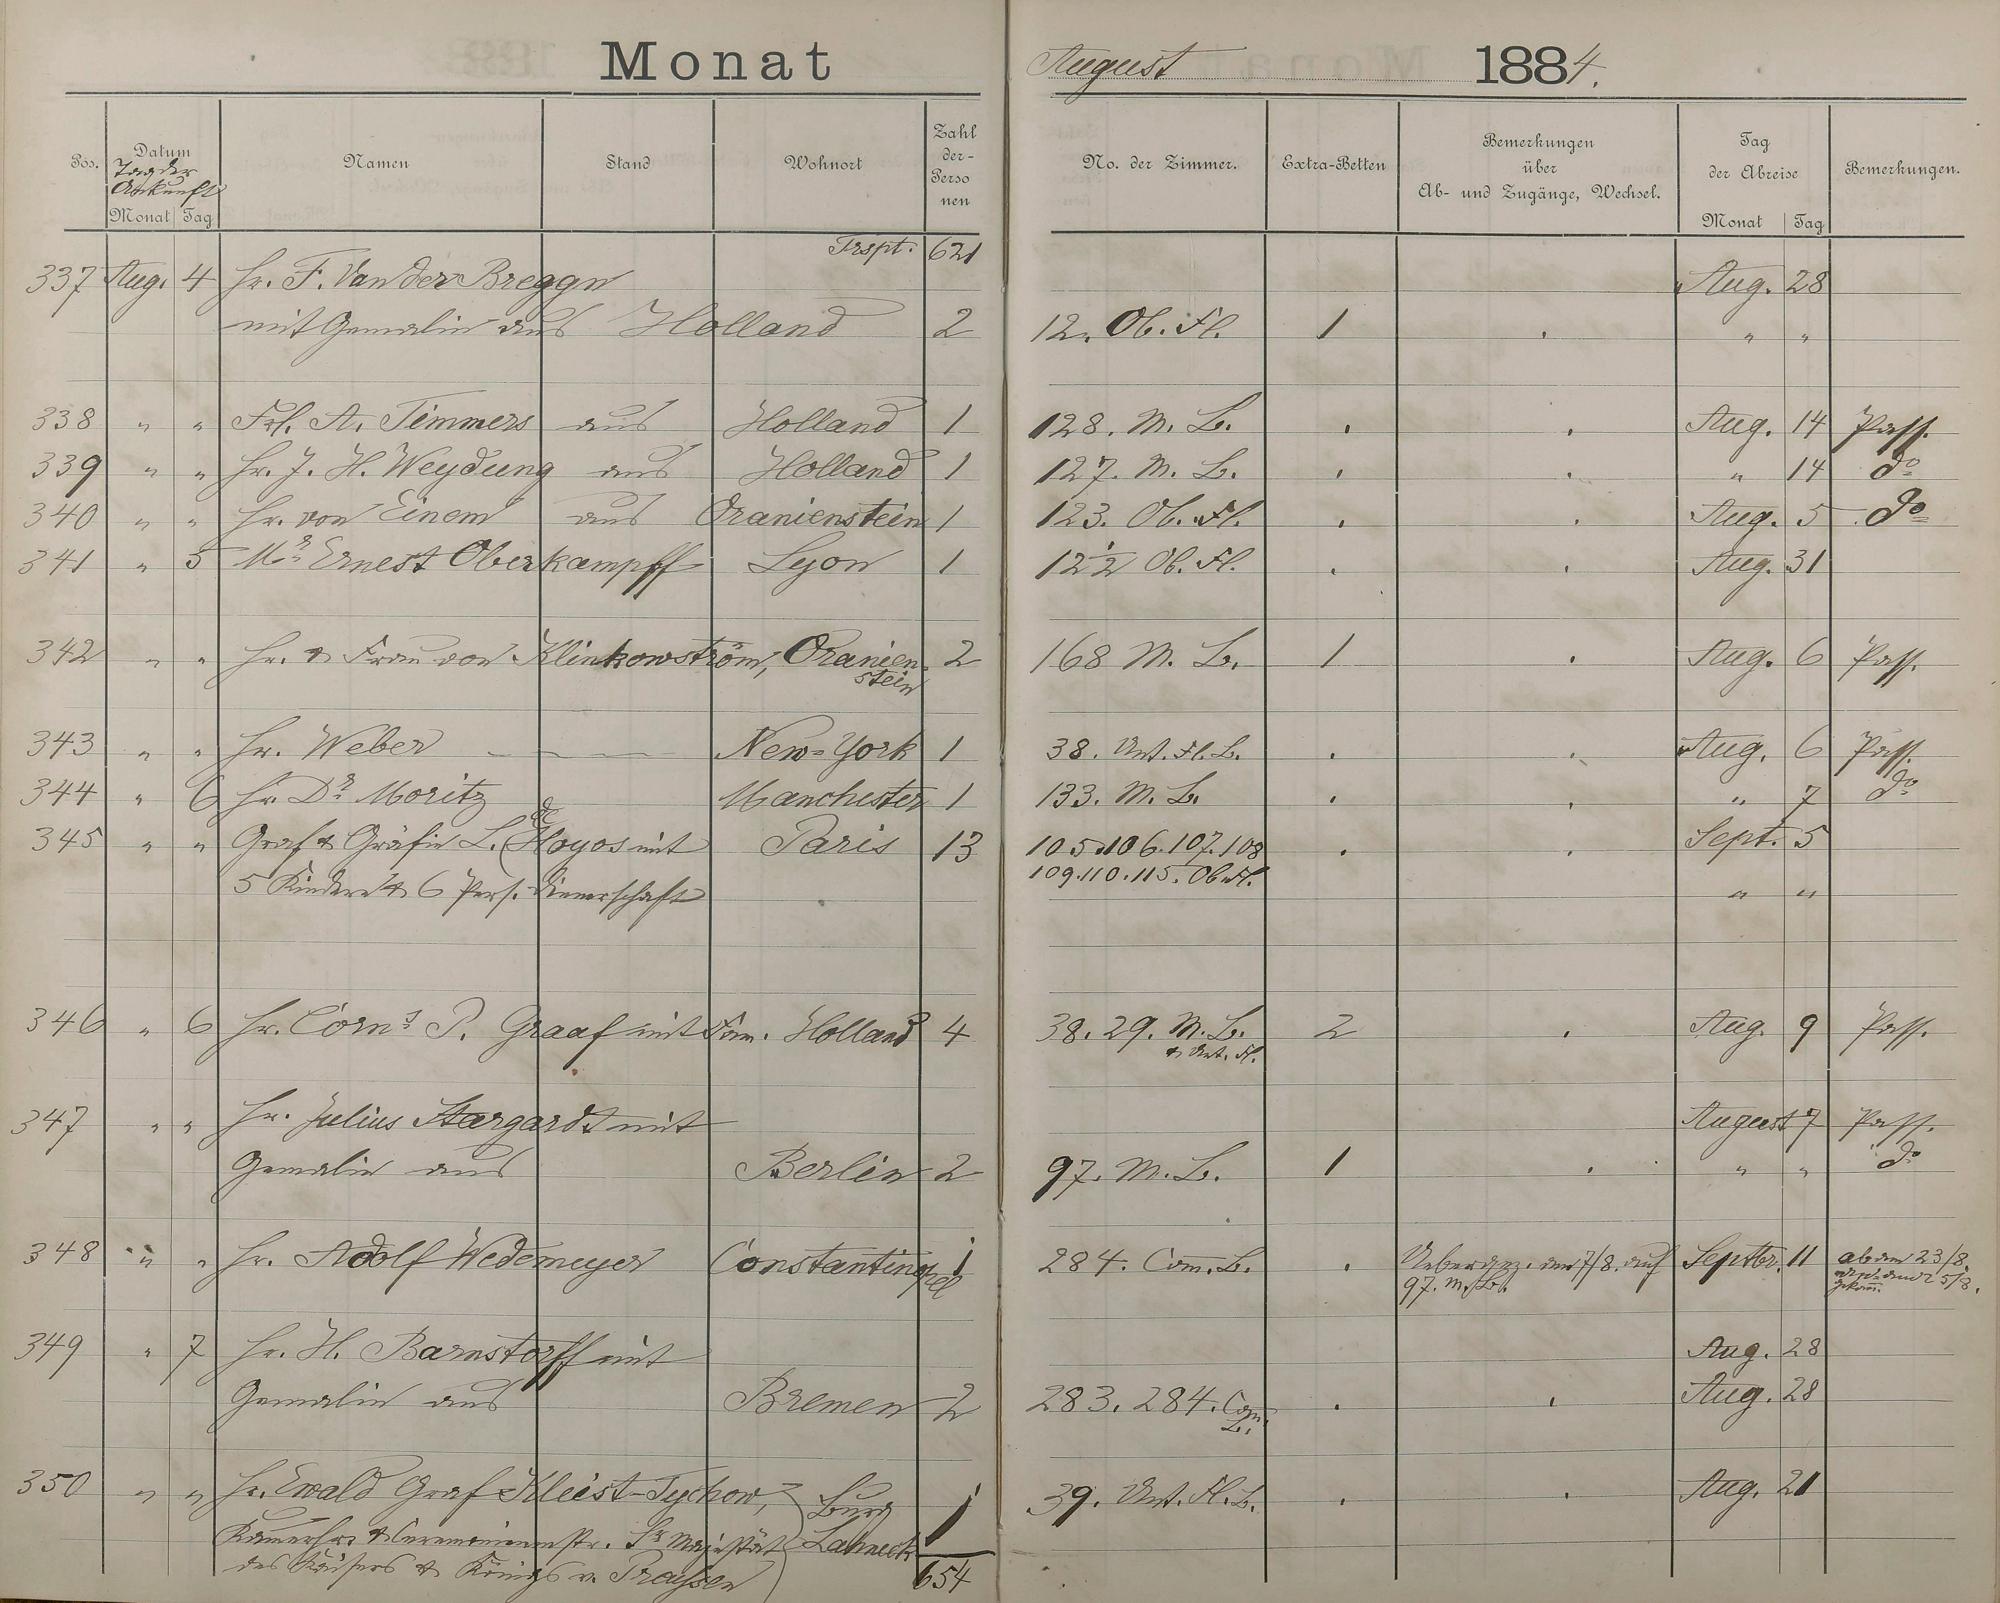 Monat August 1884.
Pos. Datum Namen Stand Wohnort Zahl der Personen No. der Zimmer. Extra-Betten Bemerkungen über Ab- und Zugänge, Wechsel. Tag der Abreise Bemerkungen.
Tag der Ankunft
Monat Tag Monat Tag
Trspt. 621
337 Aug. 4 Hr. F. Van der Breggn Aug. 28
mit Gemalin aus Holland 2 12. Ob. Fl. 1 . " "
338 " " Frl. A. Timmers aus Holland 1 128. M. B. . . Aug. 14 Pass.
339 " " Hr. J. H. Weydung aus Holland 1 127. M. B. . . " 14 do
340 " " Hr. von Einem aus Oranienstein 1 123. Ob. Fl. . . Aug. 5 do
341 " 5 Mr. Ernest Oberkampff Lyon 1 12½ Ob. Fl. . . Aug. 31
342 " " Hr. & Frau von Klinkowström, Oranien- 2 168 M. B. 1 . Aug. 6 Pass.
stein
343 " " Hr. Weber — — — New-York 1 38. Unt. Fl. B. . . Aug. 6 Pass.
344 " 6 Hr. Dr. Moritz Manchester 1 133. M. B. . . " 7 do
345 " " Graf & Gräfin L. (de Hoyos mit Paris 13 105.106.107.108 . . Sept. 5
5 Kinder & 6 Pers. Dienerschaft 109.110.115. Ob. Fl. " "
346 " 6 Hr. Corns. P. Graaf mit Fam. Holland 4 38. 29. M. B. 2 . Aug. 9 Pass.
& Unt. Fl.
347 " " Hr. Julius Stargardt mit August 7 Pass.
Gemalin aus Berlin 2 97. M. B. 1 . " " do
348 " " Hr. Adolf Wedemeyer Constantinopel 1 284. Com. B. . den 7/8. auf Septbr. 11 ab den 23/8.
97. M. B. den 25/8.
349 " 7 Hr. H. Barnstorff mit Aug. 28
Gemalin aus Bremen 2 283. 284. Com. B. . . Aug. 28
350 " " Hr. Ewald Graf Kleist-Tychow, Burg 1 39. Unt. Fl. B. . . Aug. 21
Kammerhr. & Ceremonienmstr. Sr. Majestät Lahneck
des Kaisers & Königs v. Preussen 654